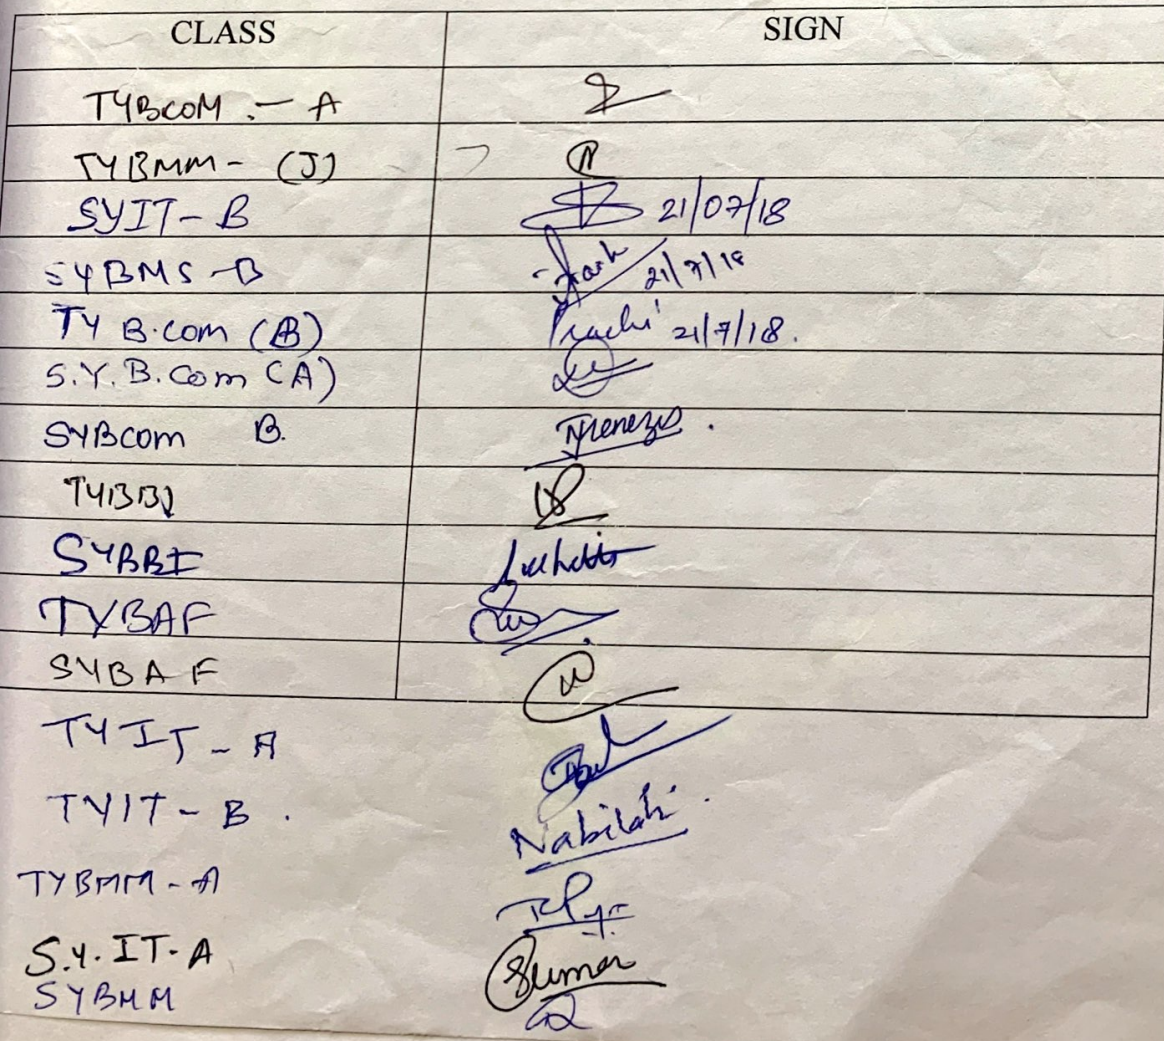 CLASS SIGN
TYBCOM :- A
TYBMM - (J)
SYIT - B 21/07/18
SYBMS - B 21/7/18
TY B.com (B) Prachi 21/7/18.
S.Y. B. Com (A)
SYBCOM B.
TYBBI
SYBBI
TYBAF
SYBAF
TYIT - A
TYIT - B . Nabilah
TYBMM - A
S.Y. IT - A Suman
SYBMM